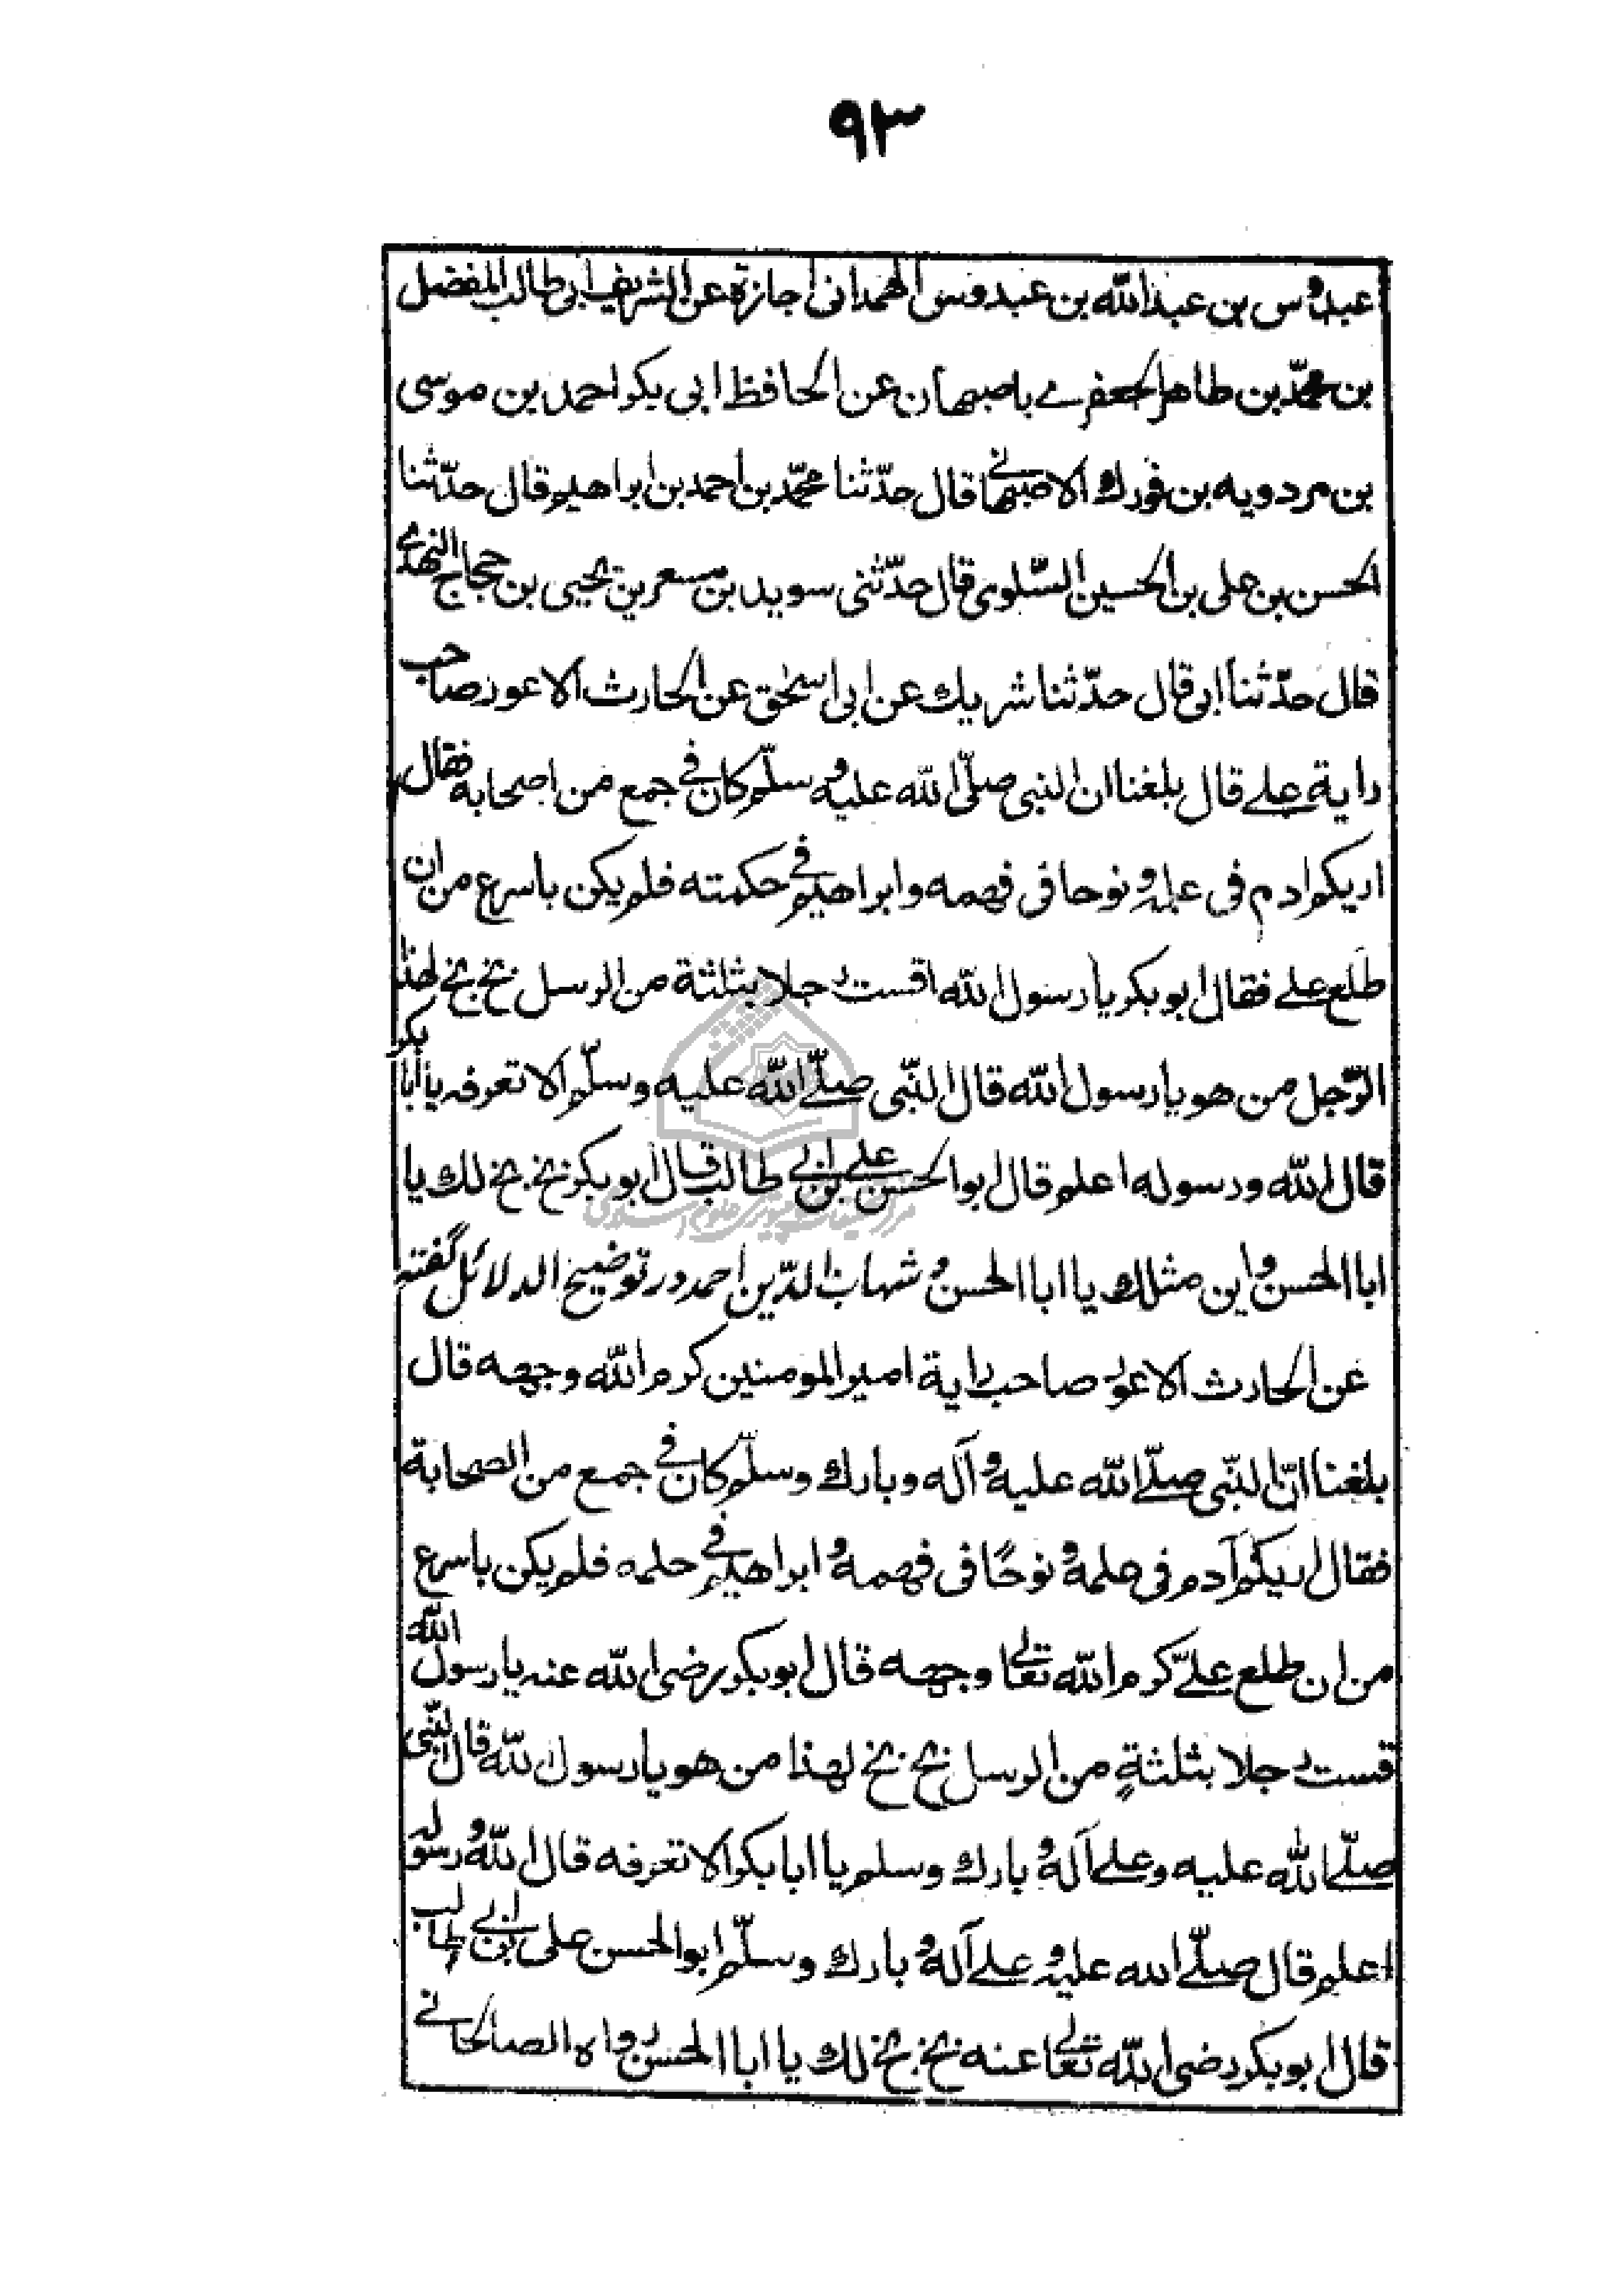 ٩٣
عبدوس بن عبد الله بن عبدوس الهمدانی اجازة عن الشریف ابی طالب المفضل
بن محمّد بن طاهر الجعفرے باصبهان عن الحافظ ابی بکر احمد بن موسی
بن مردویه بن فورك الاصبهانے قال حدّثنا محمّد بن احمد بن ابراهیم قال حدّثنا
الحسن بن علی بن الحسین السّلوی قال حدّثنی سوید بن مسعر بن یحیی بن حجاج النهدے
قال حدّثنا ابی قال حدّثنا شریك عن ابی اسحٰق عن الحارث الاعور صاحب
رایة علے قال بلغنا ان النبی صلّی الله علیه وسلّم کان فی جمع من اصحابه فقال
اریکم ادم فی علمه و نوحا فی فهمه وابراهیم فی حکمته فلم یکن باسرع من ان
طلع علے فقال ابو بکر یا رسول الله اقست رجلا بثلثة من الرسل بخ بخ لهذا
الرّجل من هو یا رسول الله قال النّبی صلّے الله علیه وسلّم الا تعرفه یا أبا بکر
قال الله ورسوله اعلم قال ابوالحسن علے بن ابے طالب قال ابو بکر بخ بخ لك یا
ابا الحسن و این مثلك یا ابا الحسن و شهاب الدّین احمد در توضیح الدلائل گفته
عن الحارث الاعور صاحب رایة امیر المومنین کرم الله وجهه قال
بلغنا انّ النبّی صلّے الله علیه و آله و بارك وسلّم کان فی جمع من الصحابة
فقال اریکم آدم فی علمه و نوحًا فی فهمه و ابراهیم فی حلمه فلم یکن باسرع
من ان طلع علےّ کرم الله تعالے وجهه قال ابو بکر رضی الله عنه یا رسول الله
قست رجلا بثلثةٍ من الرسل بخ بخ لهذا من هو یا رسول الله قال النّبی
صلّے الله علیه وعلے آله و بارك وسلم یا ابا بکر الا تعرفه قال الله و رسوله
اعلم قال صلّے الله علیه و علے آله و بارك وسلّم ابوالحسن علی بن ابے طالب
قال ابو بکر رضی الله تعالے عنه بخ بخ لك یا ابا الحسن رواه الصالحانے